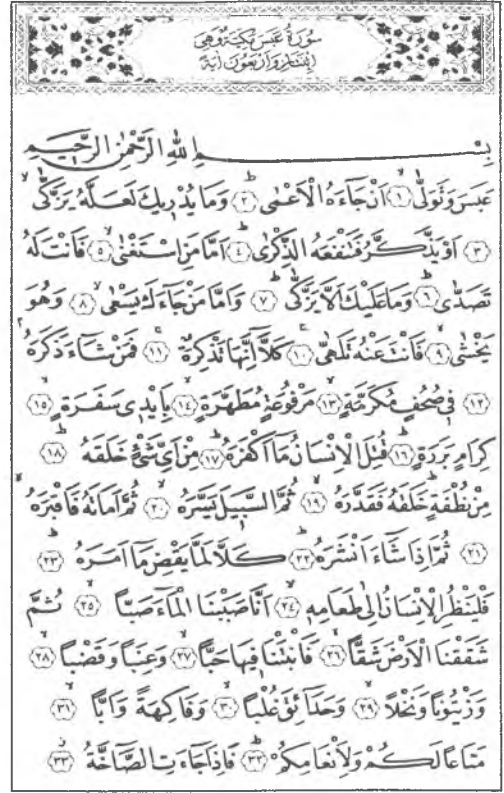 سُورَةُ عَبَسَ مَكِّيَّةٌ وَهِيَ
اِثْنَتَانِ وَاَرْبَعُونَ اٰيَةً
بِسْمِ اللّٰهِ الرَّحْمٰنِ الرَّحِيمِ
عَبَسَ وَتَوَلّٰىۙ ﴿١﴾ اَنْ جَٓاءَهُ الْاَعْمٰىۜ ﴿٢﴾ وَمَا يُدْرٖيكَ لَعَلَّهُ يَزَّكّٰىۙ
﴿٣﴾ اَوْ يَذَّكَّرُ فَتَنْفَعَهُ الذِّكْرٰىۜ ﴿٤﴾ اَمَّا مَنِ اسْتَغْنٰىۙ ﴿٥﴾ فَاَنْتَ لَهُ
تَصَدّٰىۜ ﴿٦﴾ وَمَا عَلَيْكَ اَلَّا يَزَّكّٰىۜ ﴿٧﴾ وَاَمَّا مَنْ جَٓاءَكَ يَسْعٰىۙ ﴿٨﴾ وَهُوَ
يَخْشٰىۙ ﴿٩﴾ فَاَنْتَ عَنْهُ تَلَهّٰىۚ ﴿١٠﴾ كَلَّٓا اِنَّهَا تَذْكِرَةٌۚ ﴿١١﴾ فَمَنْ شَٓاءَ ذَكَرَهُۢ
﴿١٢﴾ فٖي صُحُفٍ مُكَرَّمَةٍۙ ﴿١٣﴾ مَرْفُوعَةٍ مُطَهَّرَةٍۙ ﴿١٤﴾ بِاَيْدٖي سَفَرَةٍۙ ﴿١٥﴾
كِرَامٍ بَرَرَةٍۜ ﴿١٦﴾ قُتِلَ الْاِنْسَانُ مَٓا اَكْفَرَهُۜ ﴿١٧﴾ مِنْ اَيِّ شَيْءٍ خَلَقَهُۜ ﴿١٨﴾
مِنْ نُطْفَةٍۜ خَلَقَهُ فَقَدَّرَهُۙ ﴿١٩﴾ ثُمَّ السَّبٖيلَ يَسَّرَهُۙ ﴿٢٠﴾ ثُمَّ اَمَاتَهُ فَاَقْبَرَهُۙ
﴿٢١﴾ ثُمَّ اِذَا شَٓاءَ اَنْشَرَهُۜ ﴿٢٢﴾ كَلَّا لَمَّا يَقْضِ مَٓا اَمَرَهُۜ ﴿٢٣﴾
فَلْيَنْظُرِ الْاِنْسَانُ اِلٰى طَعَامِهٖۙ ﴿٢٤﴾ اَنَّا صَبَبْنَا الْمَٓاءَ صَبًّاۙ ﴿٢٥﴾ ثُمَّ
شَقَقْنَا الْاَرْضَ شَقًّاۙ ﴿٢٦﴾ فَاَنْبَتْنَا فٖيهَا حَبًّاۙ ﴿٢٧﴾ وَعِنَبًا وَقَضْبًاۙ ﴿٢٨﴾
وَزَيْتُونًا وَنَخْلًاۙ ﴿٢٩﴾ وَحَدَٓائِقَ غُلْبًاۙ ﴿٣٠﴾ وَفَاكِهَةً وَاَبًّاۙ ﴿٣١﴾
مَتَاعًا لَكُمْ وَلِاَنْعَامِكُمْۜ ﴿٣٢﴾ فَاِذَا جَٓاءَتِ الصَّٓاخَّةُۘ ﴿٣٣﴾